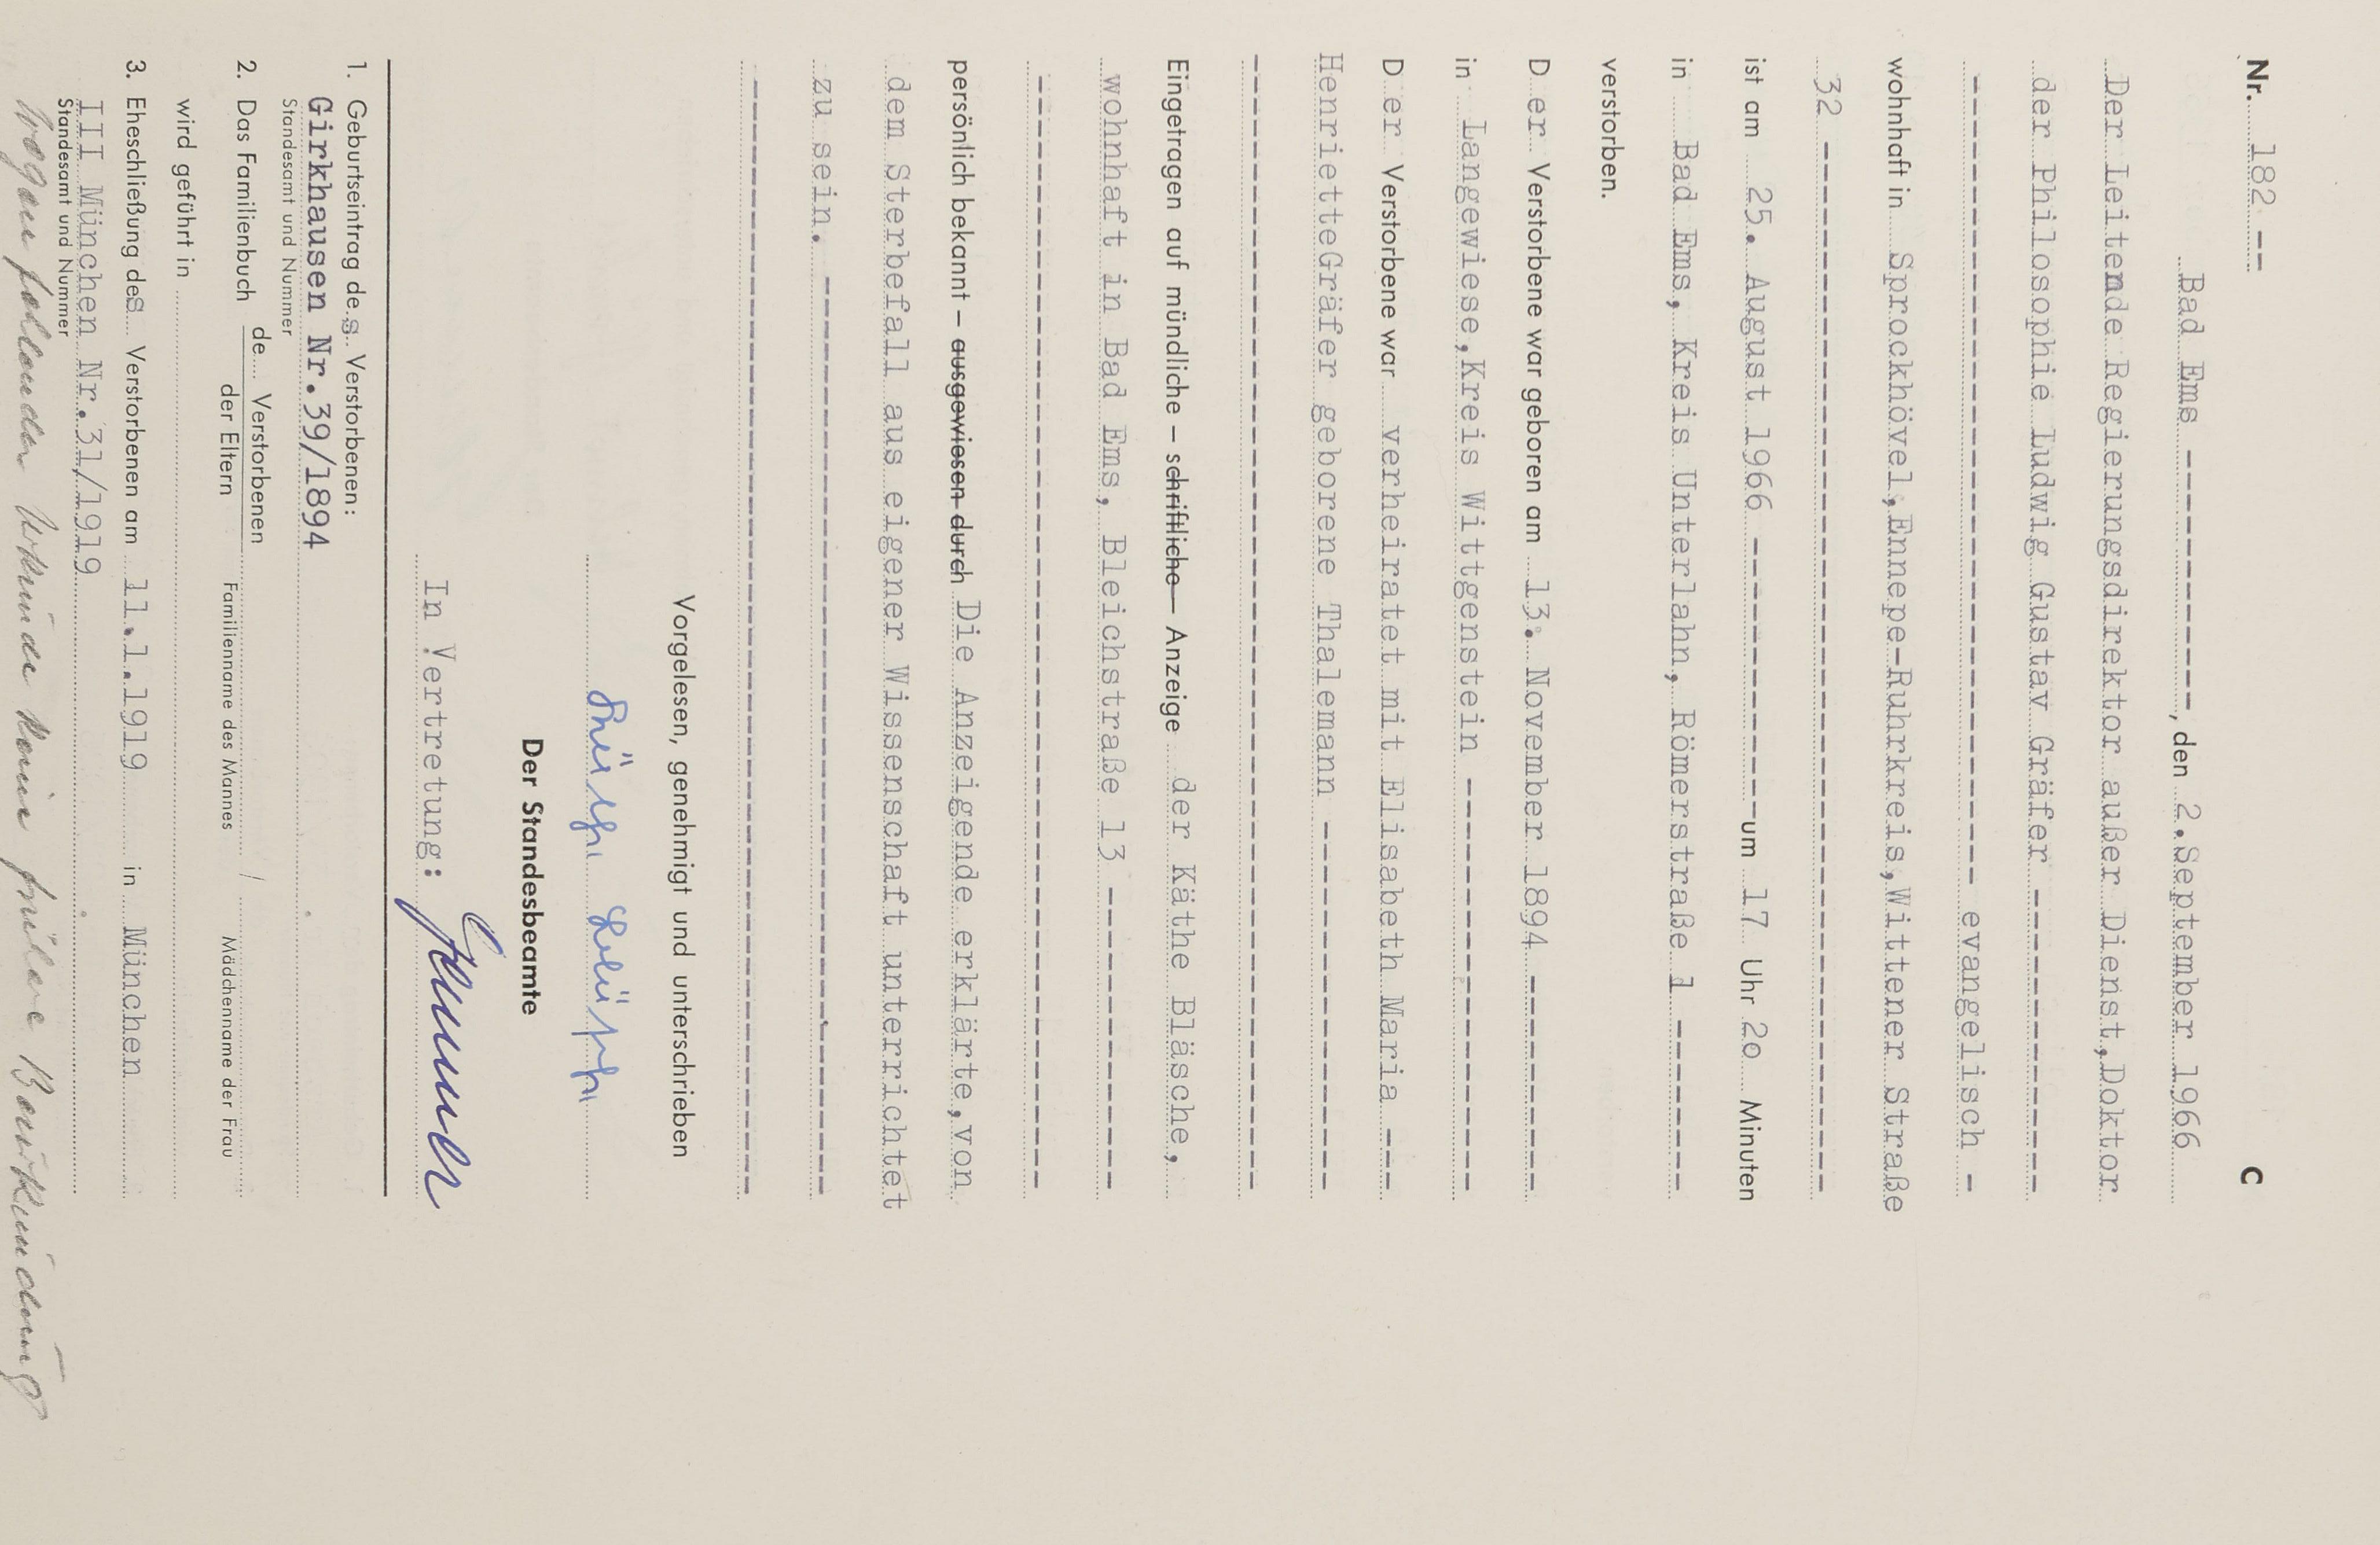 Nr. 182 -- C
Bad Ems -------------, den 2.September 1966
Der Leitende Regierungsdirektor außer Dienst,Doktor
der Philosophie Ludwig Gustav Gräfer ---------------
---------------------------------------- evangelisch -
wohnhaft in Sprockhövel,Ennepe-Ruhrkreis,Wittener Straße
32 ----------------------------------------------------
ist am 25. August 1966 --------------um 17 Uhr 2o Minuten
in Bad Ems, Kreis Unterlahn, Römerstraße 1 ---------
verstorben.
D er Verstorbene war geboren am 13. November 1894 -----------
in Langewiese,Kreis Wittgenstein --------------------
D er Verstorbene war verheiratet mit Elisabeth Maria ---
HenrietteGräfer geborene Thalemann ------------------
--------------------------------------------------------
Eingetragen auf mündliche – schriftliche – Anzeige der Käthe Bläsche,
wohnhaft in Bad Ems, Bleichstraße 13 ---------------
--------------------------------------------------------
persönlich bekannt – ausgewiesen durch Die Anzeigende erklärte,von
dem Sterbefall aus eigener Wissenschaft unterrichtet
zu sein. ---------------------------------------------
--------------------------------------------------------
Vorgelesen, genehmigt und unterschrieben
Der Standesbeamte
In Vertretung:
1. Geburtseintrag des Verstorbenen:
Girkhausen Nr.39/1894
Standesamt und Nummer
2. Das Familienbuch de Verstorbenen /
der Eltern Familienname des Mannes Mädchenname der Frau
wird geführt in
3. Eheschließung des Verstorbenen am 11.1.1919 in München
III München Nr.31/1919
Standesamt und Nummer